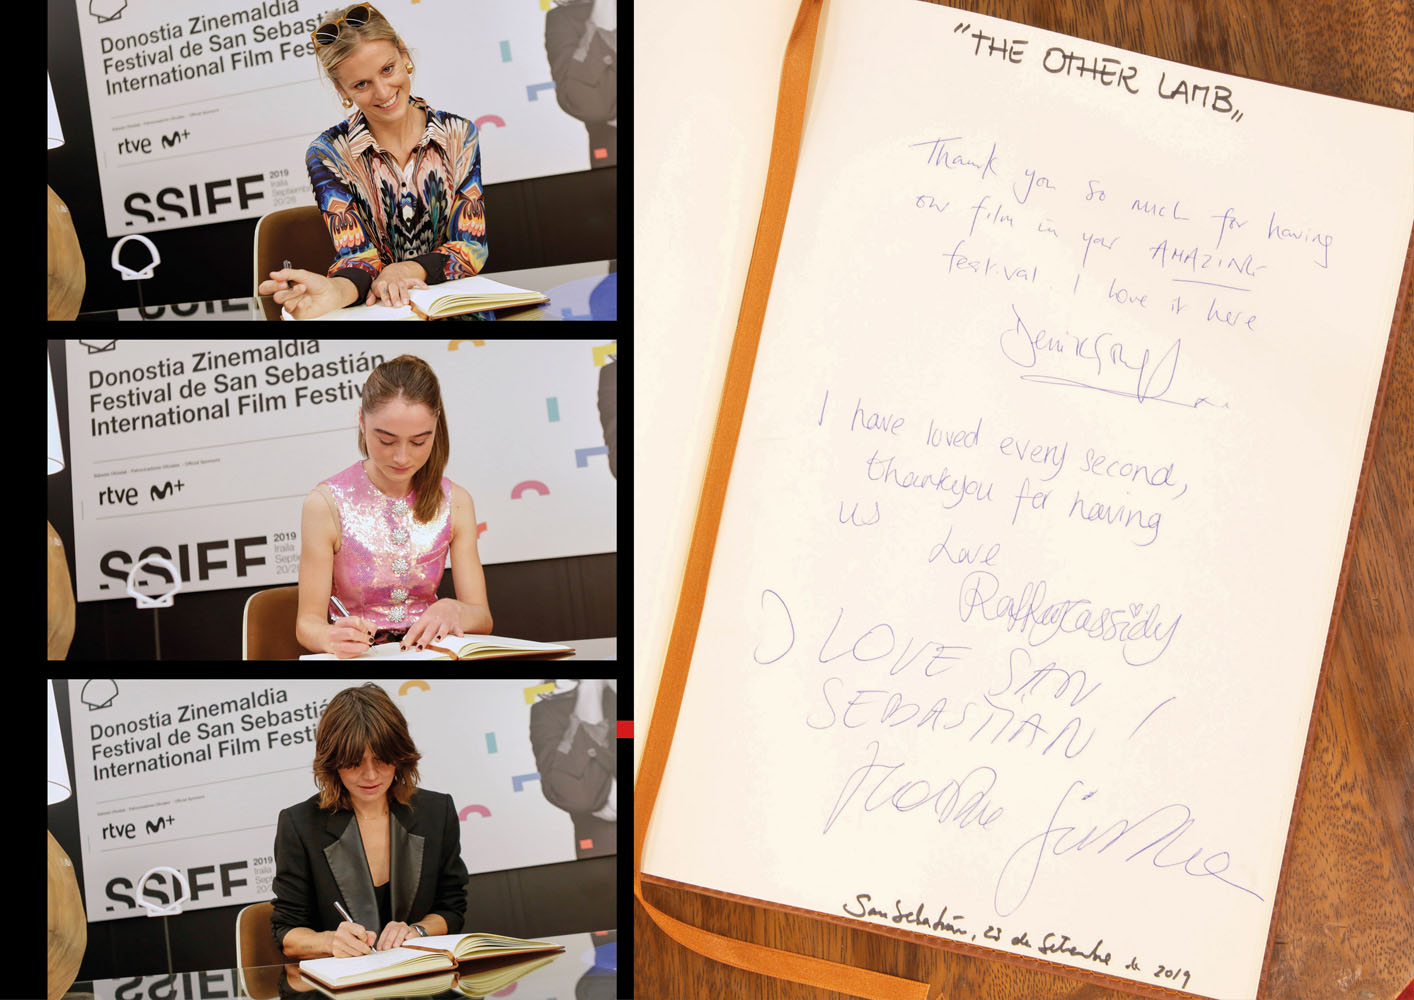 Donostia Zinemaldia
Festival de San Sebas
International Film Fes
rtve M+
SSIFF 2019
Irailа
Septiembre
20/28
Donostia Zinemaldia
Festival de San Sebastián
International Film Festiv
rtve M+
SSIFF 2019
Iraila
Septie
20/28
Donostia Zinemaldia
Festival de San Sebastiá
International Film Festi
rtve M+
SSIFF 2019
Iraila
20/2
SSIFF
"THE OTHER LAMB"
Thank you so much for having
our film in your AMAZING
festival. I love it here
I have loved every second,
thankyou for having
us
Love
Raffey Cassidy
I LOVE SAN
SEBASTIAN !
San Sebastián, 23 de Setiembre de 2019